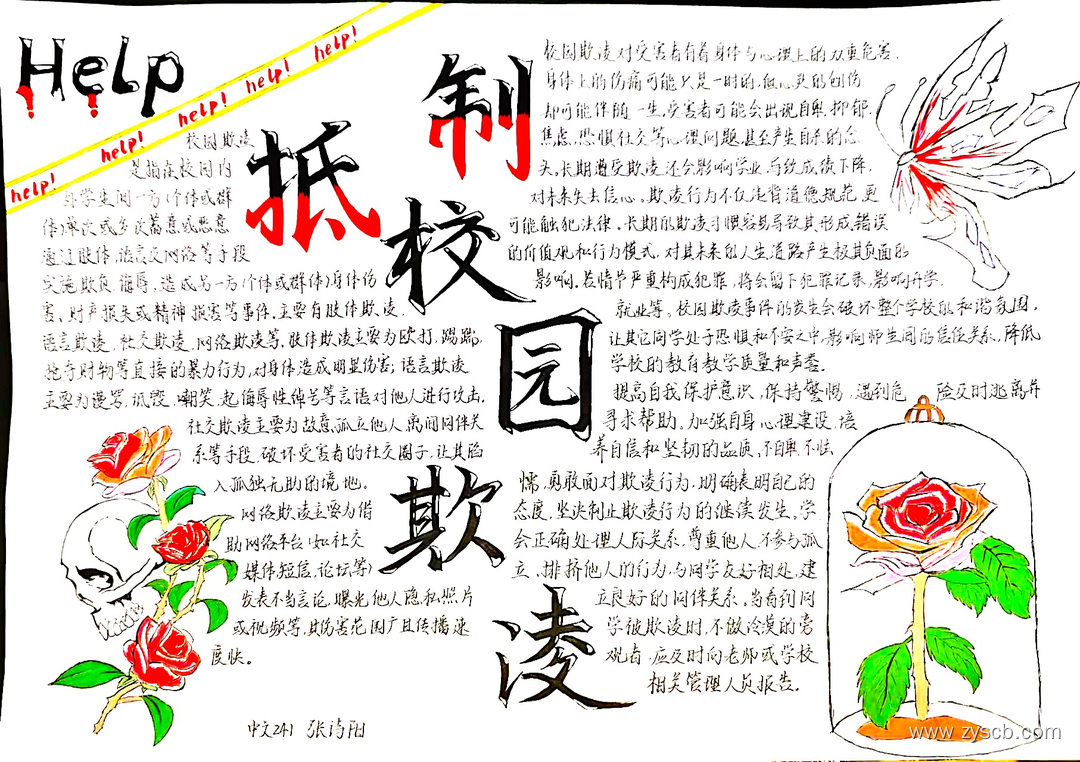 Help
help!
help!
help!
help!
help!
抵制校园欺凌
校园欺凌
是指在校园内
外学生间一方(个体或群
体)单次或多次蓄意或恶意
通过肢体、语言及网络等手段
实施欺负、侮辱,造成另一方(个体或群体)身体伤
害、财产损失或精神损害等事件,主要有肢体欺凌、
语言欺凌、社交欺凌、网络欺凌等,肢体欺凌主要为殴打、踢踹、
抢夺财物等直接的暴力行为,对身体造成明显伤害;语言欺凌
主要为谩骂、诋毁、嘲笑、起侮辱性绰号等言语对他人进行攻击,
社交欺凌主要为故意孤立他人,离间同伴关
系等手段,破坏受害者的社交圈子,让其陷
入孤独无助的境地。
网络欺凌主要为借
助网络平台(如社交
媒体短信、论坛等)
发表不当言论,曝光他人隐私照片
或视频等,其伤害范围广且传播速
度快。
中文241 张诗阳
校园欺凌对受害者有着身体与心理上的双重危害.
身体上的伤痛可能只是一时的,但心灵的创伤
却可能伴随一生,受害者可能会出现自卑、抑郁、
焦虑、恐惧社交等心理问题,甚至产生自杀的念
头,长期遭受欺凌还会影响学业,导致成绩下降,
对未来失去信心。欺凌行为不仅违背道德规范,更
可能触犯法律,长期的欺凌习惯容易导致其形成错误
的价值观和行为模式,对其未来的人生道路产生极其负面的
影响,若情节严重构成犯罪,将会留下犯罪记录,影响升学、
就业等。校园欺凌事件的发生会破坏整个学校的和谐氛围,
让其它同学处于恐惧和不安之中,影响师生间的信任关系,降低
学校的教育教学质量和声誉。
提高自我保护意识,保持警惕,遇到危险及时逃离并
寻求帮助。加强自身心理建设,培
养自信和坚韧的品质,不自卑、不怯
懦,勇敢面对欺凌行为,明确表明自己的
态度,坚决制止欺凌行为的继续发生。学
会正确处理人际关系,尊重他人,不参与孤
立、排挤他人的行为,与同学友好相处,建
立良好的同伴关系。当看到同
学被欺凌时,不做冷漠的旁
观者,应及时向老师或学校
相关管理人员报告。
www.zyscb.com